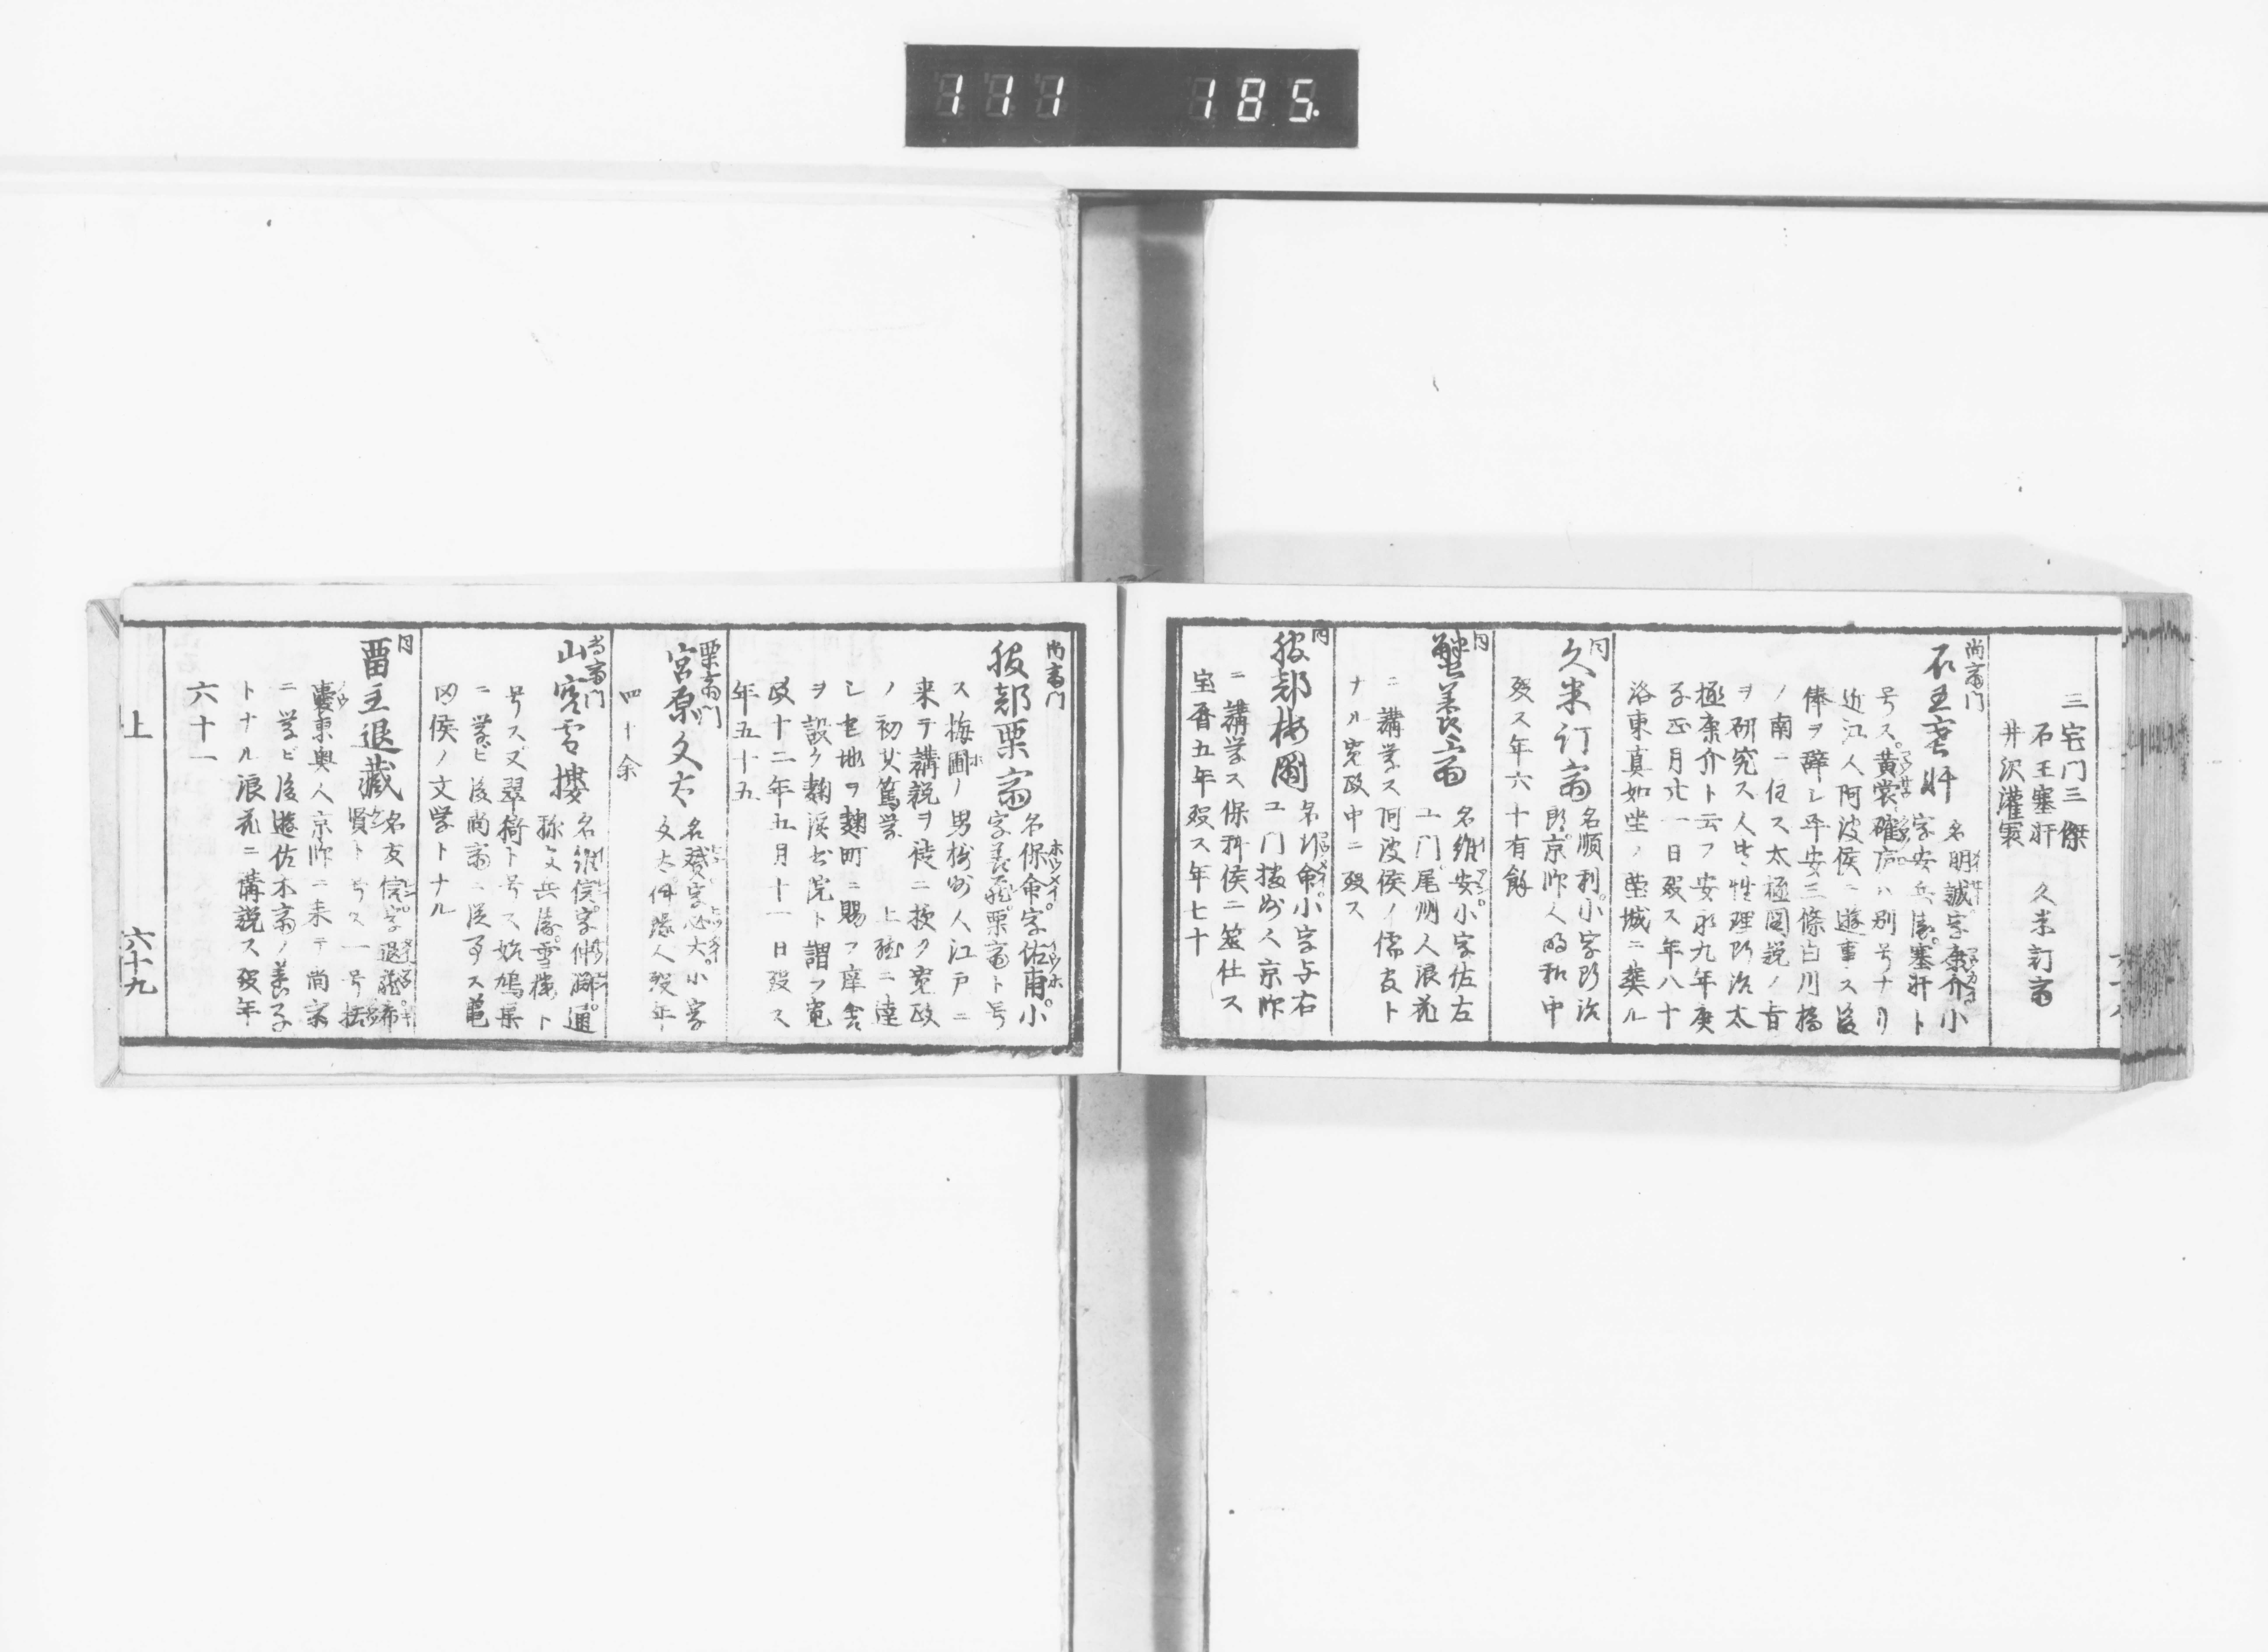 111 185.
三宅門三傑
石王塞軒 久米訂斎
井沢灌園
尚斎门
石王塞軒
名明誠字康介小
字安兵衛塞軒ト
号ス黄裳確庐ハ別号ナリ
近江人阿波侯ニ遊事ス後
俸ヲ辞シ平安三條白川橋
ノ南ニ住ス太極図説ノ旨
ヲ研究ス人
極康介ト云フ安永九年庚
子正月廿一日歿ス年八十
洛東真如堂ノ塋域ニ葬ル
同
久米订斎
名順利小字断治
郎京師人明和中
歿ス年六十有餘
同
蟹養斎
名維安小字佐左
エ门尾州人浪花
ニ講業ス阿波侯ノ儒官ト
ナル寛政中ニ歿ス
同
服部梅圃
小字与右
エ门摂州人京師
ニ講学ス保科侯ニ筮仕ス
宝暦五年歿ス年七十
尚斎门
服部栗斎
名保命字佑甫小
字善蔵栗斎ト号
ス梅圃ノ男摂州人江戸ニ
来テ講説ヲ徒ニ授ク寛政
ノ初其篤学 上聴ニ達
シ官地ヲ麹町ニ賜フ庠舎
ヲ設ク麹溪書院ト謂フ寛
政十二年五月十一日歿ス
年五十五
栗斎门
宮原文太
小字
文太 人歿年
四十余
尚斎门
山宮雪樓
名維深字仲淵通
称文兵衛雪樓ト
号ス又翠猗ト号ス始鳩巣
ニ業ビ後尚斎ニ従事ス亀
岡侯ノ文学トナル
同
留主退蔵
名友信字退蔵希
賢ト号ス一号括
嚢東奥人京師ニ来テ尚斎
ニ学ビ後遊佐木斎ノ養子
トナル浪花ニ講説ス歿年
六十一
上 六十九